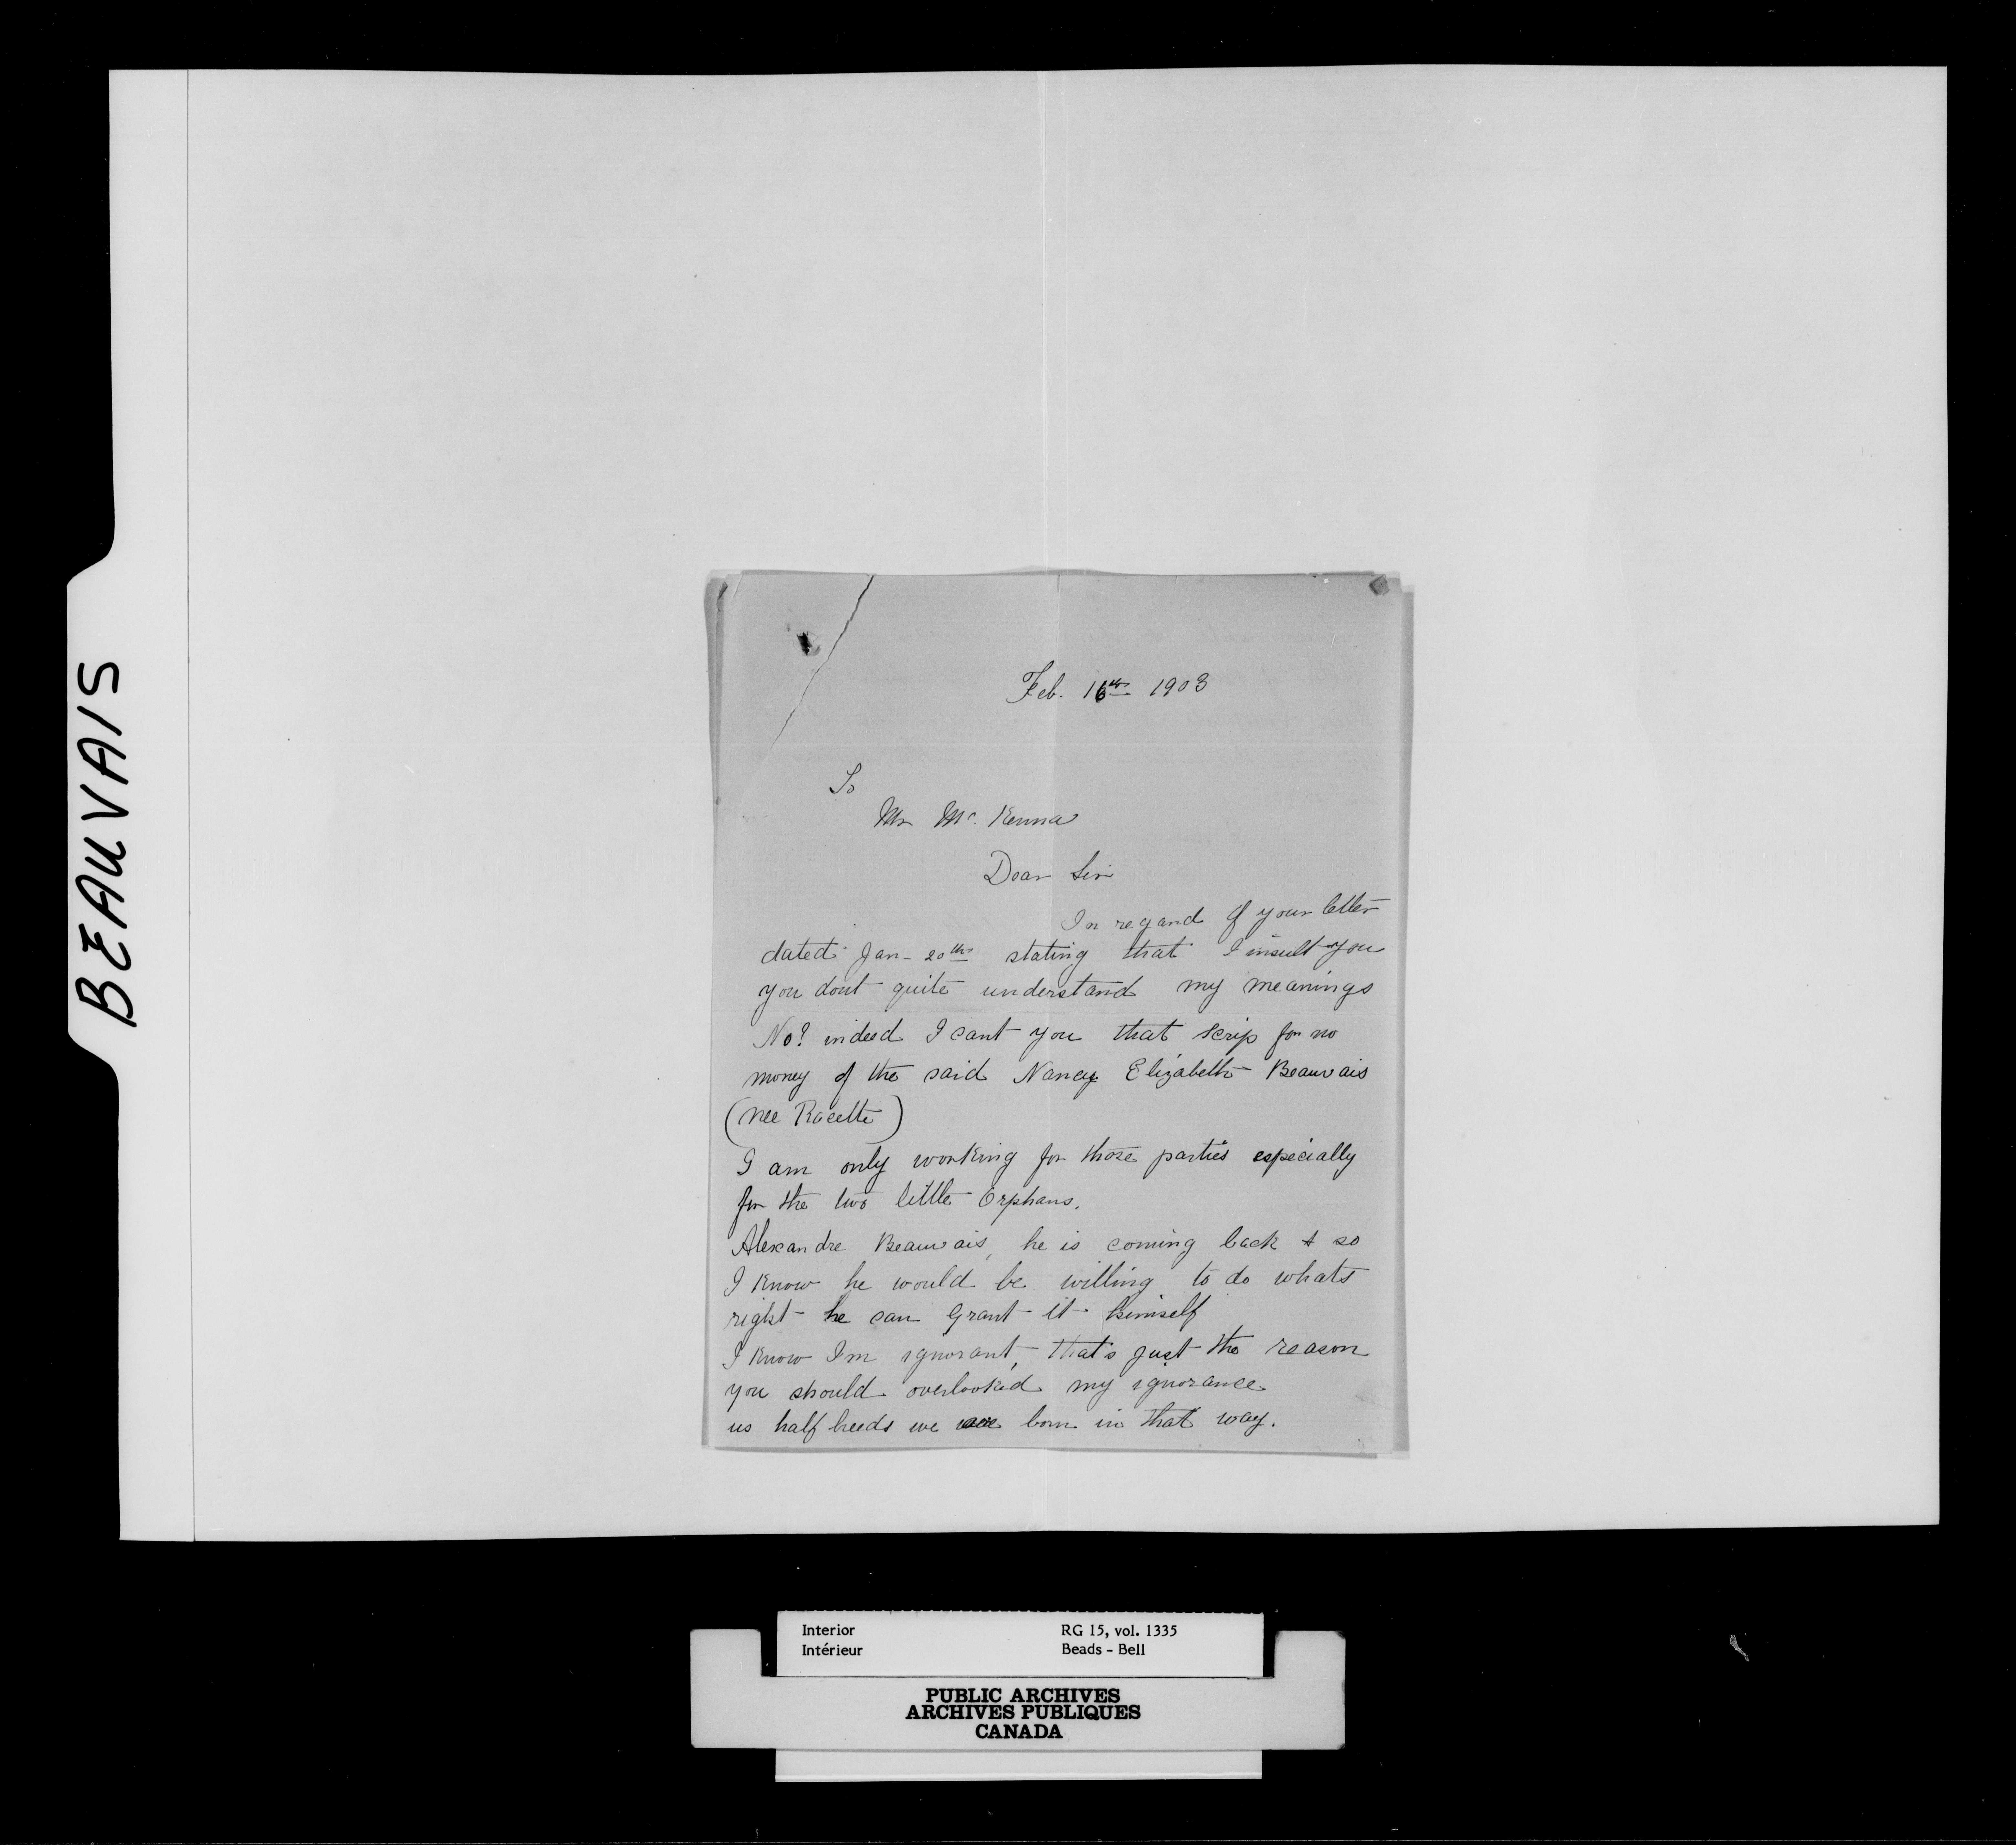 BEAUVAIS
Feb. 16th 1903
To
Mr Mc. Kenna
Dear Sir
In regard of your letter
dated Jan- 20th stating that I insult you
you dont quite understand my meanings
No! indeed I cant you that scrip for no
money of the said Nancy Elizabeth Beauvais
(nee Racette)
I am only working for those parties especially
for the two little Orphans.
Alexandre Beauvais, he is coming back & so
I know he would be willing to do whats
right he can grant it himself
I know I'm ignorant, that's just the reason
you should overlooked my ignorance
us half breeds we are born in that way.
Interior RG 15, vol. 1335
Intérieur Beads - Bell
PUBLIC ARCHIVES
ARCHIVES PUBLIQUES
CANADA